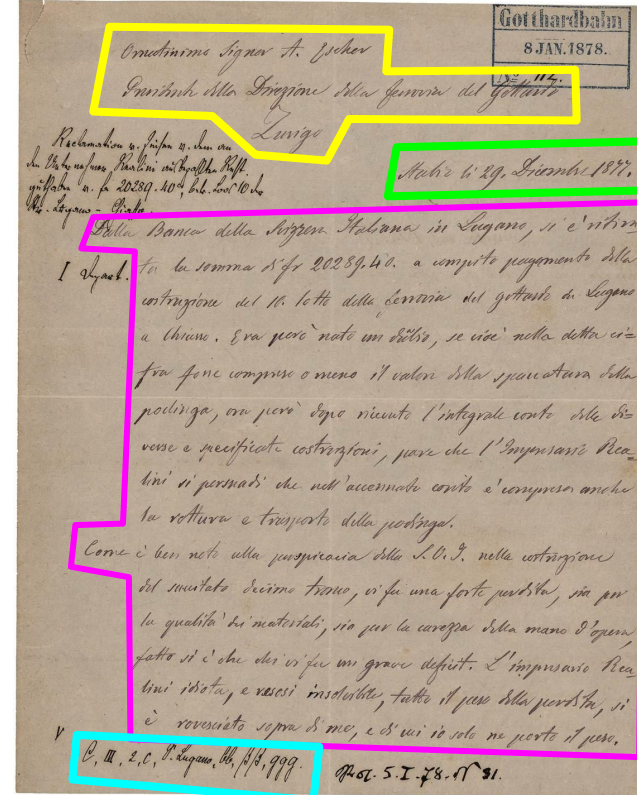 Gotthardbahn
8 JAN. 1878.
No 112.
Ornatissimo Signor A. Escher
Presidente della Direzione della ferrovia del Gottardo
Zurigo
Stabio li 29. Dicembre 1877.
Reclamation v. Zinsen
den Unternehmer Realini Rest-
guthaben v. fr 20289.40
Lugano - Chiasso.
I Depart.
Dalla Banca della Svizzera Italiana in Lugano, si è ritira
ta la somma di fr 20289.40. a compito pagamento della
costruzione del 10. lotto della ferrovia del gottardo da Lugano
a Chiasso. Era però nato un dubbio, se cioè nella detta ci=
fra fosse compreso o meno il valore della spaccatura della
podinga, ora però dopo ricevuto l'integrale conto delle di=
verse e specificate costruzioni, pare che l'Impresario Rea=
lini si persuadi che nell'accennato conto è compreso anche
la rottura e trasporto della podinga.
Come è ben noto alla perspicacia della S.V.I. nella costruzione
del succitato decimo tronco, vi fu una forte perdita, sia per
la qualità dei materiali, sia per la carezza della mano d'opera,
fatto si è che chi vi fu un grave deficit. L'impresario Rea=
lini idiota, e resosi insolvibile, tutto il peso della perdita, si
è rovesciato sopra di me, e di cui io solo ne porto il peso.
V
C, III, 2, c, P. Lugano, bb, β/β, ggg.
Prot. 5. I. 78. N 31.